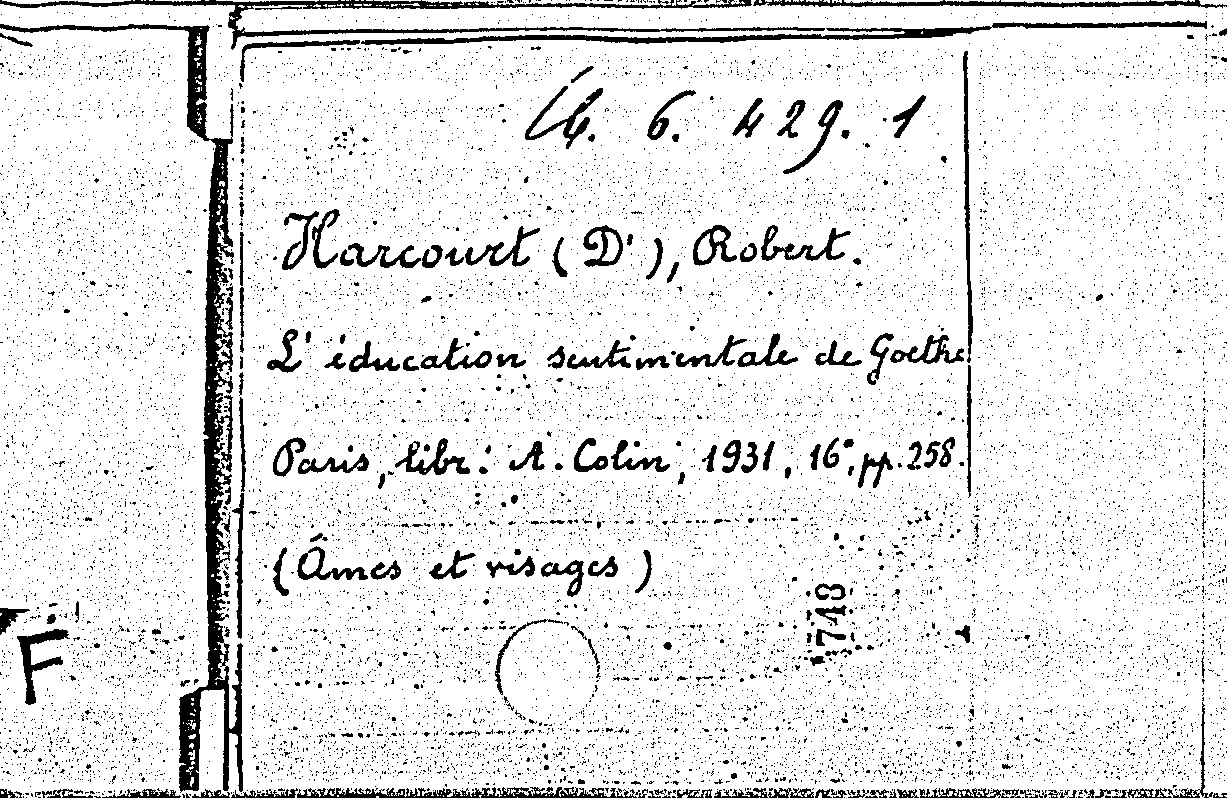 6. 429. 1
Harcourt (D'), Robert.
L'éducation sentimentale de Goethe
Paris, libr. A. Colin, 1931, 16°, pp. 258.
(Âmes et visages)
1748
F